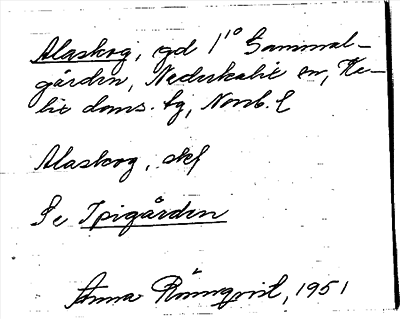 Alaskog, gd 1¹⁰ Gammal-
gården, Nederkalix sn, Ka-
lix doms. tg, Norrb. l
Alaskog, skf
Se Spigården
Anna Rönnqvist, 1951